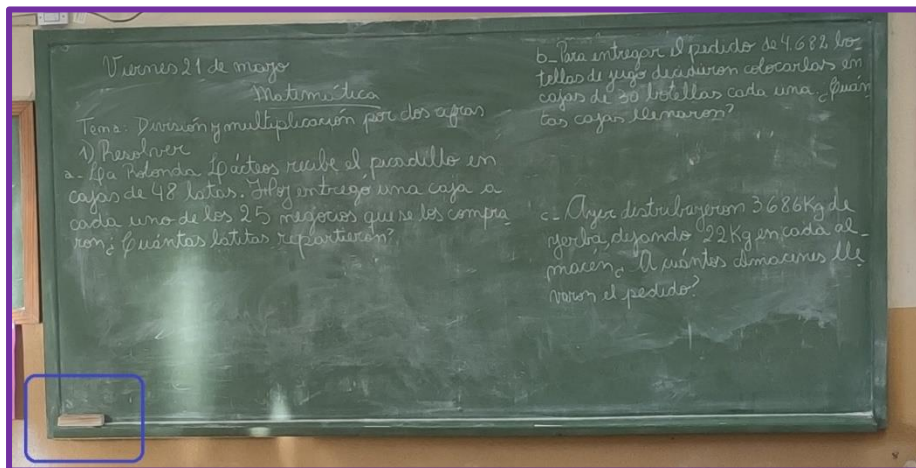 Viernes 21 de mayo
Matemática
Tema: División y multiplicación por dos cifras
1) Resolver
a- La Rotonda Lácteos recibe el picadillo en
cajas de 48 latas. Hoy entregó una caja a
cada uno de los 25 negocios que se los compra
ron ¿Cuántas latitas repartieron?
b- Para entregar el pedido de 4.682 bo-
tellas de jugo decidieron colocarlas en
cajas de 30 botellas cada una. ¿Cuán
tas cajas llenaron?
c- Ayer distribuyeron 3686 Kg de
yerba, dejando 22 Kg en cada al-
macén. ¿A cuántos almacenes lle
varon el pedido?